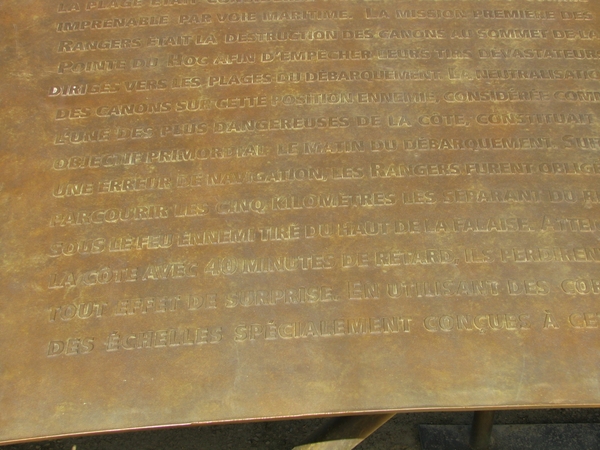 LA PLAGE ÉTAIT
IMPRENABLE PAR VOIE MARITIME. LA MISSION PREMIÈRE DES
RANGERS ÉTAIT LA DESTRUCTION DES CANONS AU SOMMET DE LA
POINTE DU HOC AFIN D'EMPÊCHER LEURS TIRS DÉVASTATEURS
DIRIGÉS VERS LES PLAGES DU DÉBARQUEMENT. LA NEUTRALISATIO
DES CANONS SUR CETTE POSITION ENNEMIE, CONSIDÉRÉE COM
L'UNE DES PLUS DANGEREUSES DE LA CÔTE, CONSTITUAIT
OBJECTIF PRIMORDIAL LE MATIN DU DÉBARQUEMENT. SUI
UNE ERREUR DE NAVIGATION, LES RANGERS FURENT OBLIG
PARCOURIR LES CINQ KILOMÈTRES LES SÉPARANT DU
SOUS LE FEU ENNEMI TIRÉ DU HAUT DE LA FALAISE. ATTE
LA CÔTE AVEC 40 MINUTES DE RETARD, ILS PERDIREN
TOUT EFFET DE SURPRISE. EN UTILISANT DES COR
DES ÉCHELLES SPÉCIALEMENT CONÇUES À CE